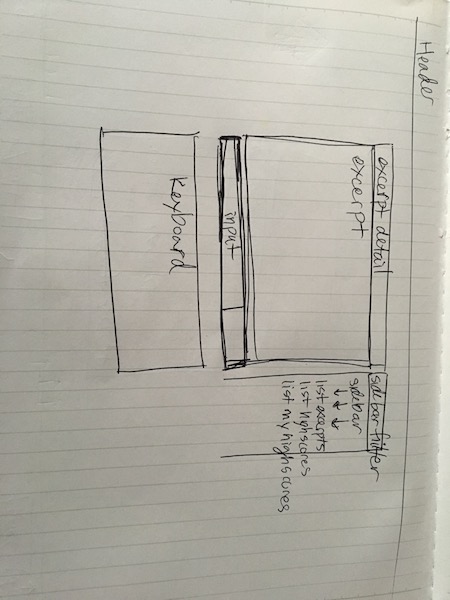 Header
excerpt detail
excerpt
input
Keyboard
sidebar filter
sidebar
list excerpts
list highscores
list my highscores